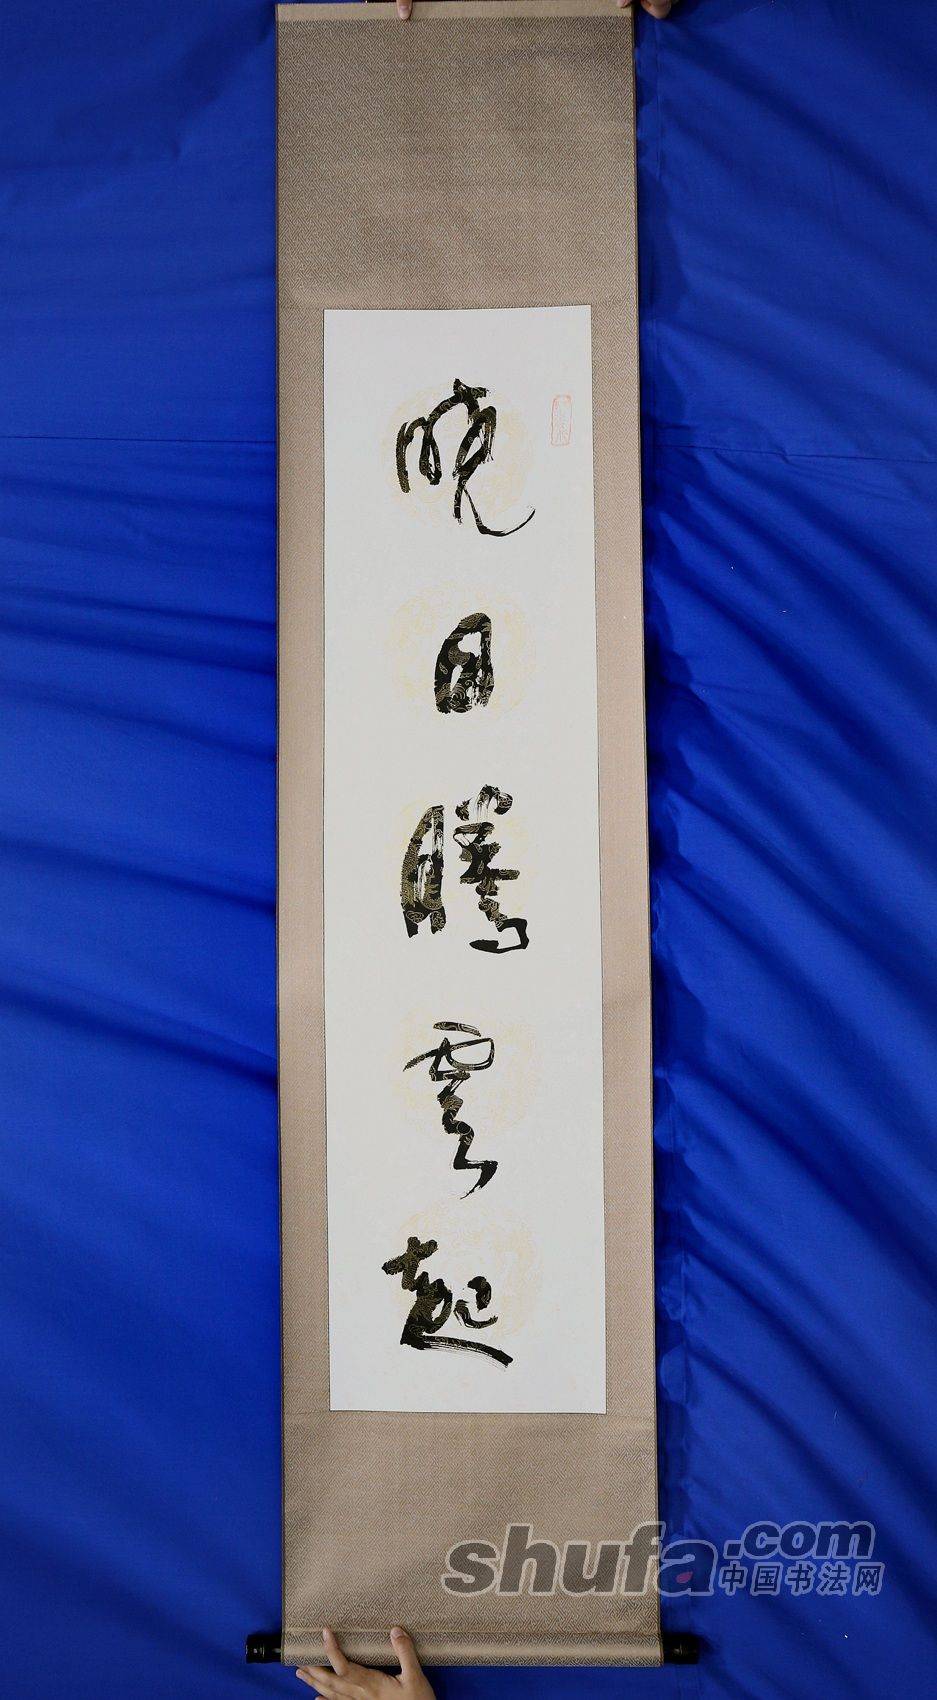 晓日腾云起
shufa.com
中国书法网